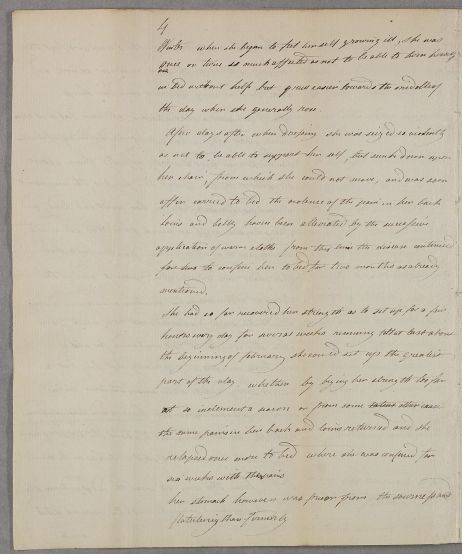 4
Winter when she began to feel herself growing ill, she was
once or twice so much affected as not to be able to turn herself
in bed without help but grew easier towards the middle of
the day when she generally rose.
A few days after when dressing she was seized so violently
as not to be able to support her self, but sunk down upon
her chair, from which she could not move, and was soon
after carried to bed the violence of the pain in her back
loins and belly having been alleviated by the successive
application of warm cloths from this time the disease continued
to confine her to bed for two months as already
mentioned.
She had so far recovered her strength as to set up for a few
hours every day for several weeks running till at last about
the beginning of february she could set up the greatest
part of the day whether by trying her strength too far
at so inclement a season or from some latent other cause
the same pains in her back and loins returned and she
relapsed once more to bed where she was confined for
six weeks with the pain
her stomach however was freer from the sourness and
flatulency than formerly